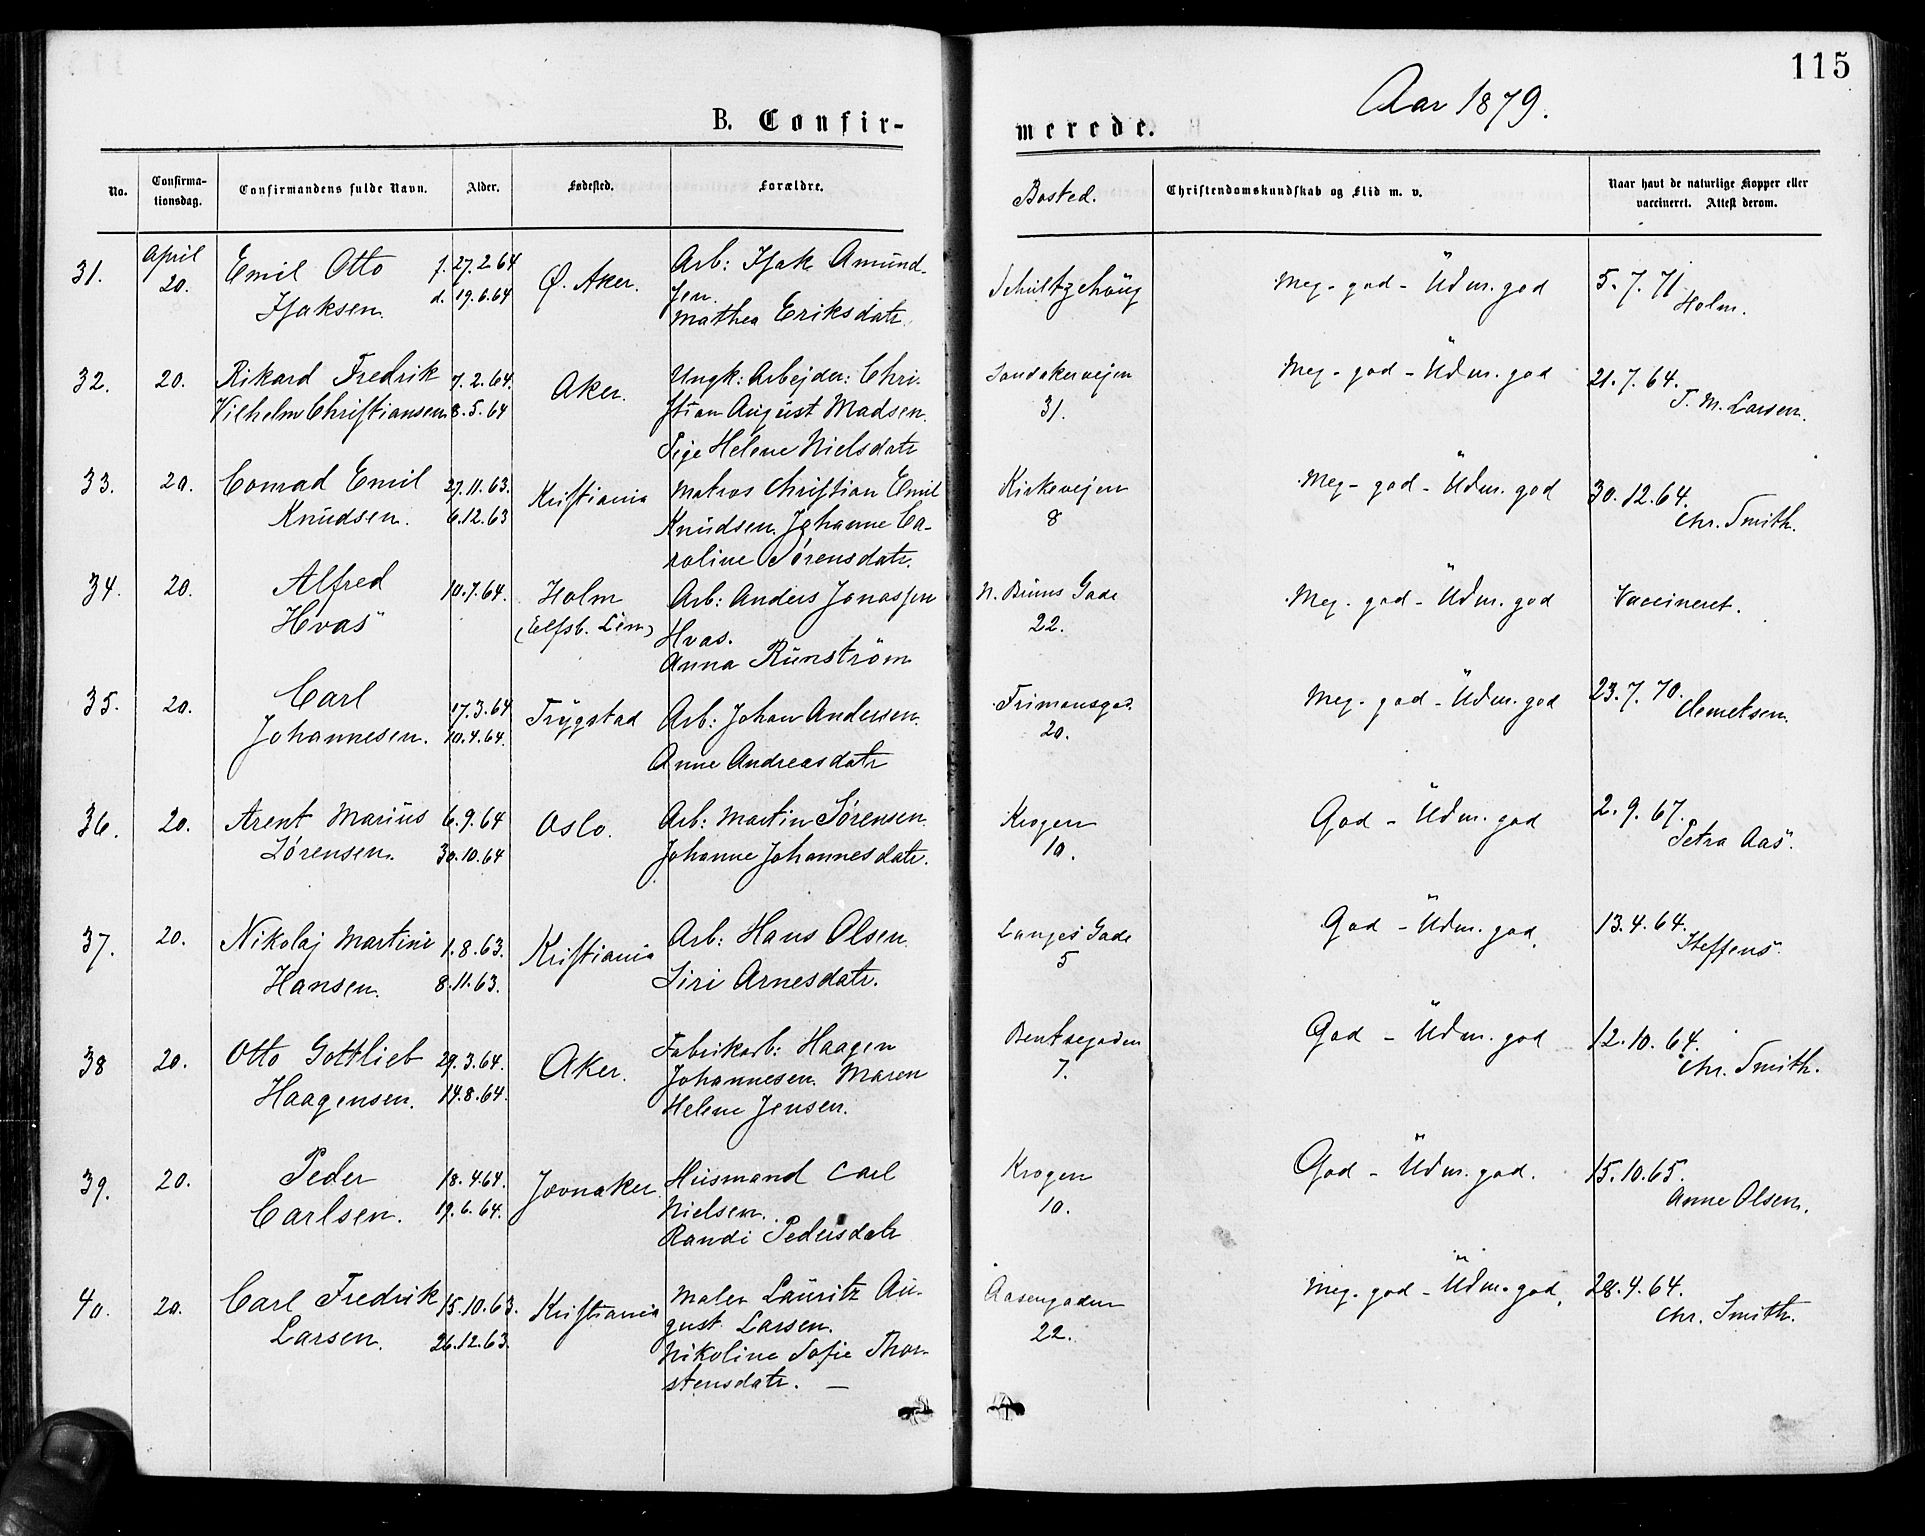 115
Aar 1879.
B. Confir-
merede.
No.
Confirma-
tionsdag.
Confirmandens fulde Navn.
Alder.
Fødested.
Forældre.
Bosted.
Christendomskundskab og Flid m. v.
Naar havt de naturlige Kopper eller
vaccineret. Attest derom.
31.
April
20.
Emil Otto
Isaksen.
f. 27.2.64
d. 19.6.64
Ø. Aker.
Arb: Isak Amund-
sen.
Mathea Eriksdatr.
Schultzehaug
Meg. god - Udm. god
5.7.71
Holm.
32.
20.
Rikard Fredrik
Vilhelm Christiansen
7.2.64.
8.5.64
Aker.
Ungk: Arbejder: Chri-
stian August Madsen.
Pige Helene Nielsdatr
Sandakervejen
31.
Meg. god - Udm. god
21.7.64.
T. M. Larsen.
33.
20.
Conrad Emil
Knudsen.
27.11.63.
6.12.63
Kristiania
Matros Christian Emil
Knudsen. Johanne Ca-
roline Sørensdatr.
Kirkevejen
8
Meg. god - Udm. god
30.12.64.
Chr. Smith.
34.
20.
Alfred
Hvas
10.7.64.
Holm
(Elfsb. Län)
Arb: Anders Jonassen
Hvas.
Anna Runström
N. Bruns Gade
22.
Meg. god - Udm. god
Vaccineret.
35.
20.
Carl
Johannesen.
17.3.64
10.4.64.
Trygstad
Arb: Johan Andersen.
Anne Andreasdatr
Frimansgad.
20.
Meg. god - Udm. god
23.7.70.
Clemetsen.
36.
20.
Arent Marius
Sørensen.
6.9.64
30.10.64
Oslo.
Arb: Martin Sørensen.
Johanne Johannesdatr.
Krogen
10.
God - Udm. god
2.9.67.
Petra Aas.
37.
20.
Nikolaj Martini
Hansen.
1.8.63.
8.11.63.
Kristiania
Arb: Hans Olsen.
Siri Arnesdatr.
Langes Gade
5
God - Udm. god.
13.4.64.
Steffens.
38
20.
Otto Gottlieb
Haagensen.
29.3.64.
14.8.64.
Aker.
Fabrikarb: Haagen
Johannesen. Maren
Helene Jensen.
Bentsegaden
7.
God - Udm. god
12.10.64.
Chr. Smith.
39.
20.
Peder
Carlsen.
18.4.64.
19.6.64.
Jevnaker.
Husmand Carl
Nielsen.
Randi Pedersdatr
Krogen
10.
God - Udm. god.
15.10.65.
Anne Olsen.
40.
20.
Carl Fredrik
Larsen.
15.10.63.
26.12.63.
Kristiania
Maler Lauritz Au-
gust Larsen.
Nikoline Sofie Thor-
stensdatr. —
Aasengaden
22.
Meg. god - Udm. god.
28.4.64.
Chr. Smith.